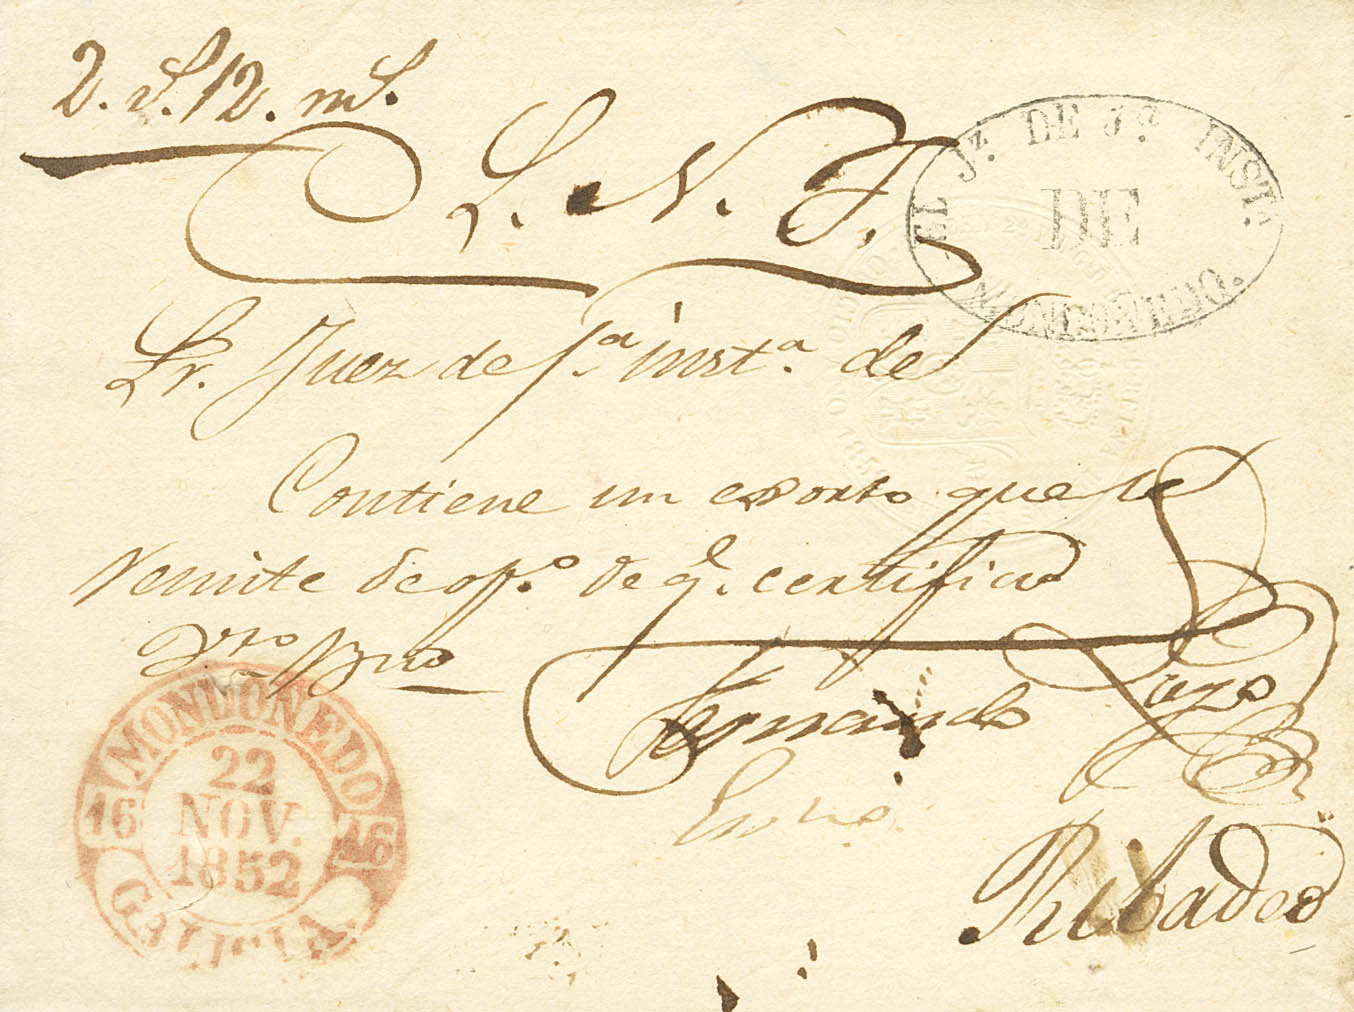 2. rs. 12. ms.
S. N. F.
EL Jz. DE Ja. INSTa.
DE
MONDOÑEDO.
Sr. Juez de 1.ª inst.ª de
Contiene un exorto que se
remite de of.º de q.e certifico
Fernando Lazo
MONDOÑEDO
16 16
22
NOV.
1852
GALICIA.
Ribadeo